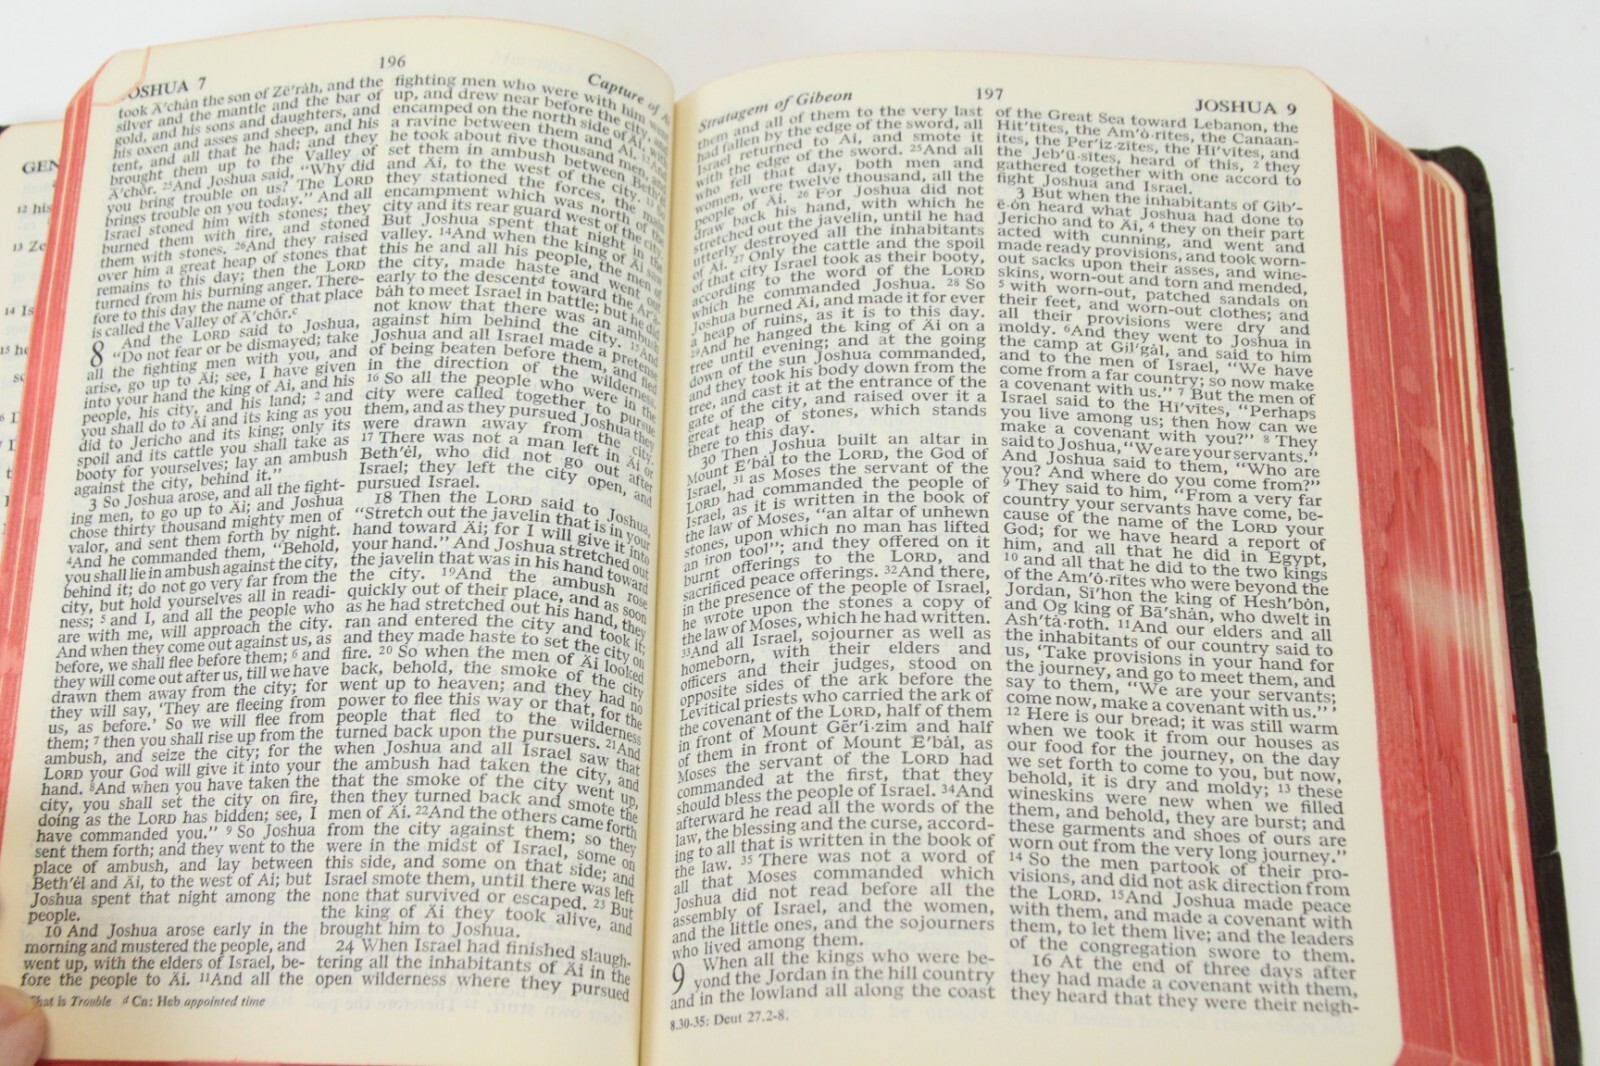 GEN
12 his
13 Ze
14 Is
15 he
OSHUA 7
196
Capture of A
took Ā′chán the son of Zē′ráh, and the
silver and the mantle and the bar of
gold, and his sons and daughters, and
his oxen and asses and sheep, and his
tent, and all that he had; and they
brought them up to the Valley of
Ā′chór. 25And Joshua said, "Why did
you bring trouble on us? The LORD
brings trouble on you today." And all
Israel stoned him with stones; they
burned them with fire, and stoned
them with stones. 26And they raised
over him a great heap of stones that
remains to this day; then the LORD
turned from his burning anger. There-
fore to this day the name of that place
is called the Valley of Ā′chór.c
8 And the LORD said to Joshua,
"Do not fear or be dismayed; take
all the fighting men with you, and
arise, go up to Āi; see, I have given
into your hand the king of Ai, and his
people, his city, and his land; 2 and
you shall do to Āi and its king as you
did to Jericho and its king; only its
spoil and its cattle you shall take as
booty for yourselves; lay an ambush
against the city, behind it."
3 So Joshua arose, and all the fight-
ing men, to go up to Āi; and Joshua
chose thirty thousand mighty men of
valor, and sent them forth by night.
4And he commanded them, "Behold,
you shall lie in ambush against the city,
behind it; do not go very far from the
city, but hold yourselves all in readi-
ness; 5 and I, and all the people who
are with me, will approach the city.
And when they come out against us, as
before, we shall flee before them; 6 and
they will come out after us, till we have
drawn them away from the city; for
they will say, 'They are fleeing from
us, as before.' So we will flee from
them; 7 then you shall rise up from the
ambush, and seize the city; for the
LORD your God will give it into your
hand. 8And when you have taken the
city, you shall set the city on fire,
doing as the LORD has bidden; see, I
have commanded you." 9 So Joshua
sent them forth; and they went to the
place of ambush, and lay between
Beth′él and Āi, to the west of Ai; but
Joshua spent that night among the
people.
10 And Joshua arose early in the
morning and mustered the people, and
went up, with the elders of Israel, be-
fore the people to Āi. 11And all the
fighting men who were with him went
up, and drew near before the city, and
encamped on the north side of Āi, with
a ravine between them and Ai. 12 And
he took about five thousand men, and
set them in ambush between Beth′el
and Āi, to the west of the city. 13 So
they stationed the forces, the main
encampment which was north of the
city and its rear guard west of the city.
But Joshua spent that night in the
valley. 14And when the king of Ai saw
this he and all his people, the men of
the city, made haste and went out
early to the descentd toward the Ar′a-
báh to meet Israel in battle; but he did
not know that there was an ambush
against him behind the city. 15 And
Joshua and all Israel made a pretense
of being beaten before them, and fled
in the direction of the wilderness.
16 So all the people who were in the
city were called together to pursue
them, and as they pursued Joshua they
were drawn away from the city.
17 There was not a man left in Āi or
Beth′él, who did not go out after
Israel; they left the city open, and
pursued Israel.
18 Then the LORD said to Joshua,
"Stretch out the javelin that is in your
hand toward Āi; for I will give it into
your hand." And Joshua stretched out
the javelin that was in his hand toward
the city. 19And the ambush rose
quickly out of their place, and as soon
as he had stretched out his hand, they
ran and entered the city and took it;
and they made haste to set the city on
fire. 20 So when the men of Āi looked
back, behold, the smoke of the city
went up to heaven; and they had no
power to flee this way or that, for the
people that fled to the wilderness
turned back upon the pursuers. 21And
when Joshua and all Israel saw that
the ambush had taken the city, and
that the smoke of the city went up,
then they turned back and smote the
men of Āi. 22And the others came forth
from the city against them; so they
were in the midst of Israel, some on
this side, and some on that side; and
Israel smote them, until there was left
none that survived or escaped. 23 But
the king of Āi they took alive, and
brought him to Joshua.
24 When Israel had finished slaugh-
tering all the inhabitants of Āi in the
open wilderness where they pursued
That is Trouble d Cn: Heb appointed time
Stratagem of Gibeon
197
JOSHUA 9
them and all of them to the very last
had fallen by the edge of the sword, all
Israel returned to Ai, and smote it
with the edge of the sword. 25And all
who fell that day, both men and
women, were twelve thousand, all the
people of Āi. 26 For Joshua did not
draw back his hand, with which he
stretched out the javelin, until he had
utterly destroyed all the inhabitants
of Āi. 27 Only the cattle and the spoil
of that city Israel took as their booty,
according to the word of the LORD
which he commanded Joshua. 28 So
Joshua burned Āi, and made it for ever
a heap of ruins, as it is to this day.
29And he hanged the king of Āi on a
tree until evening; and at the going
down of the sun Joshua commanded,
and they took his body down from the
tree, and cast it at the entrance of the
gate of the city, and raised over it a
great heap of stones, which stands
there to this day.
30 Then Joshua built an altar in
Mount E′bál to the LORD, the God of
Israel, 31 as Moses the servant of the
LORD had commanded the people of
Israel, as it is written in the book of
the law of Moses, "an altar of unhewn
stones, upon which no man has lifted
an iron tool"; and they offered on it
burnt offerings to the LORD, and
sacrificed peace offerings. 32And there,
in the presence of the people of Israel,
he wrote upon the stones a copy of
the law of Moses, which he had written.
33And all Israel, sojourner as well as
homeborn, with their elders and
officers and their judges, stood on
opposite sides of the ark before the
Levitical priests who carried the ark of
the covenant of the LORD, half of them
in front of Mount Gĕr′i·zim and half
of them in front of Mount E′bál, as
Moses the servant of the LORD had
commanded at the first, that they
should bless the people of Israel. 34And
afterward he read all the words of the
law, the blessing and the curse, accord-
ing to all that is written in the book of
the law. 35 There was not a word of
all that Moses commanded which
Joshua did not read before all the
assembly of Israel, and the women,
and the little ones, and the sojourners
who lived among them.
9 When all the kings who were be-
yond the Jordan in the hill country
and in the lowland all along the coast
8.30-35: Deut 27.2-8.
of the Great Sea toward Lebanon, the
Hit′tites, the Am′ó·rites, the Canaan-
ites, the Per′iz·zites, the Hī′vites, and
the Jeb′ū·sites, heard of this, 2 they
gathered together with one accord to
fight Joshua and Israel.
3 But when the inhabitants of Gib′-
ē·ón heard what Joshua had done to
Jericho and to Āi, 4 they on their part
acted with cunning, and went and
made ready provisions, and took worn-
out sacks upon their asses, and wine-
skins, worn-out and torn and mended,
5 with worn-out, patched sandals on
their feet, and worn-out clothes; and
all their provisions were dry and
moldy. 6And they went to Joshua in
the camp at Gil′gál, and said to him
and to the men of Israel, "We have
come from a far country; so now make
a covenant with us." 7 But the men of
Israel said to the Hi′vītes, "Perhaps
you live among us; then how can we
make a covenant with you?" 8 They
said to Joshua, "We are your servants."
And Joshua said to them, "Who are
you? And where do you come from?"
9 They said to him, "From a very far
country your servants have come, be-
cause of the name of the LORD your
God; for we have heard a report of
him, and all that he did in Egypt,
10 and all that he did to the two kings
of the Am′ó·rītes who were beyond the
Jordan, Sī′hon the king of Hesh′bón,
and Og king of Bā′shán, who dwelt in
Ash′tá·roth. 11And our elders and all
the inhabitants of our country said to
us, 'Take provisions in your hand for
the journey, and go to meet them, and
say to them, "We are your servants;
come now, make a covenant with us." '
12 Here is our bread; it was still warm
when we took it from our houses as
our food for the journey, on the day
we set forth to come to you, but now,
behold, it is dry and moldy; 13 these
wineskins were new when we filled
them, and behold, they are burst; and
these garments and shoes of ours are
worn out from the very long journey."
14 So the men partook of their pro-
visions, and did not ask direction from
the LORD. 15And Joshua made peace
with them, and made a covenant with
them, to let them live; and the leaders
of the congregation swore to them.
16 At the end of three days after
they had made a covenant with them,
they heard that they were their neigh-